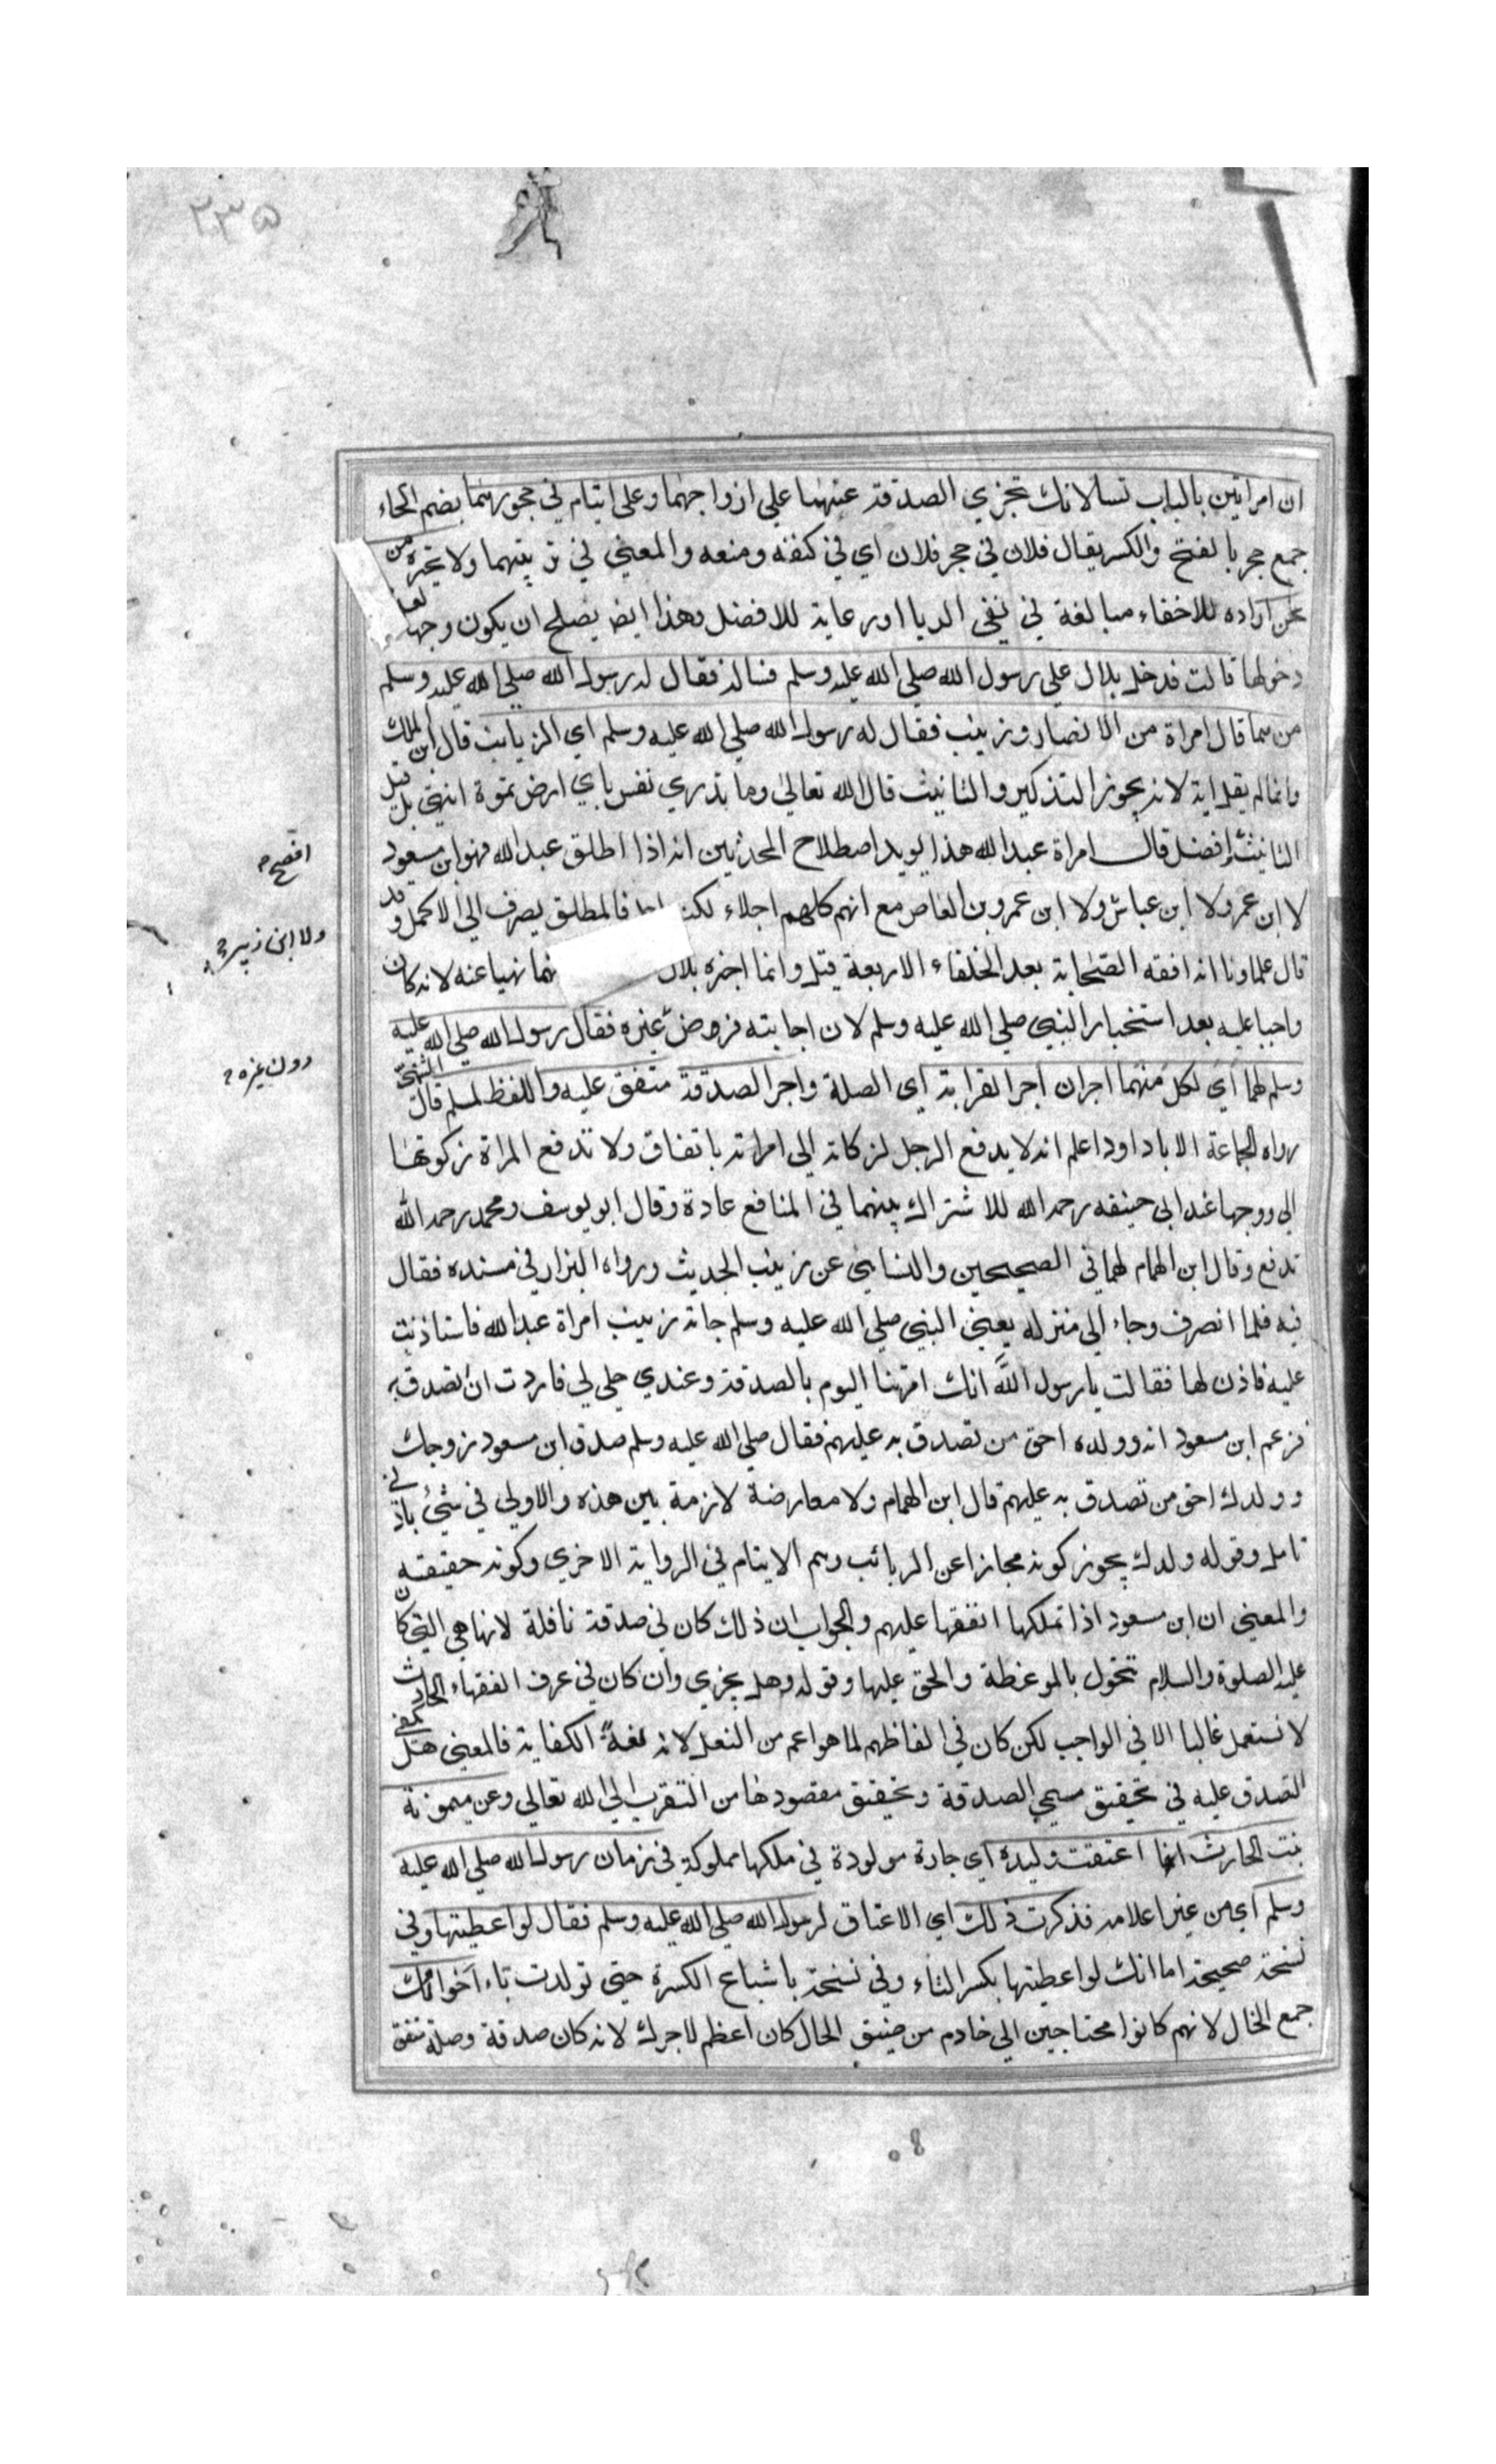 ٢٣٥
ان امراتين بالباب تسالانك تجزي الصدقة عنهما علي ازواجهما وعلى ايتام في حجورهما بضم الحاء
جمع حجر بالفتح والكسر يقال فلان في حجر فلان اي في كنفه ومنعه والمعني في تربيتهما ولا تخبره من
نحن اراده للاخفاء مبالغة في نفي الريا اورعاية للافضل وهذا ايض يصلح ان يكون وجها لعدم
دخولها قالت فدخل بلال علي رسول الله صلي الله عليه وسلم فساله فقال له رسول الله صلي الله عليه وسلم
من هما قال امراة من الانصار وزينب فقال له رسول الله صلي الله عليه وسلم اي الزيانب قال ابن الملك
وانما لم يقل اية لانه يجوز التذكير والتانيث قال الله تعالي وما تدري نفس باي ارض تموت انتهي بل قيل
التانيث افضل قال امراة عبد الله هذا يويد اصطلاح المحدثين انه اذا اطلق عبد الله فهو ابن مسعود
لا ابن عمر ولا ابن عباس ولا ابن عمرو بن العاص مع انهم كلهم اجلاء لكنه فالمطلق يصرف الي الاكمل وقد
قال علماونا انه افقه الصحابة بعد الخلفاء الاربعة قيل وانما اخبره بلال نهيا عنه لانه كان
واجبا عليه بعد استخبار النبي صلي الله عليه وسلم لان اجابته فرض غيره فقال رسول الله صلي الله عليه
وسلم لهما اي لكل منهما اجران اجر القرابة اي الصلة واجر الصدقة متفق عليه واللفظ لمسلم قال الشمني
رواه الجماعة الا ابا داود اعلم انه لا يدفع الرجل لزكاته الي امراته باتفاق ولا تدفع المراة زكوتها
الي زوجها عند ابي حنيفه رحمه الله للاشتراك بينهما في المنافع عادة وقال ابو يوسف ومحمد رحمه الله
تدفع وقال ابن الهمام لهما في الصحيحين والنسائي عن زينب الحديث ورواه البزار في مسنده فقال
فيه فلما انصرف وجاء الي منزله يعني النبي صلي الله عليه وسلم جاته زينب امراة عبد الله فاستاذنت
عليه فاذن لها فقالت يا رسول الله انك امرتنا اليوم بالصدقة وعندي حلي لي فاردت ان اتصدق به
فزعم ابن مسعود انه وولده احق من تصدق به عليهم فقال صلي الله عليه وسلم صدق ابن مسعود زوجك
وولدك احق من تصدق به عليهم قال ابن الهمام ولا معارضة لازمة بين هذه والاولي في شئ بادني
تامل وقوله ولدك يجوز كونه مجازا عن الربائب وهم الايتام في الرواية الاخري وكونه حقيقه
والمعني ان ابن مسعود اذا تملكها انفقها عليهم والجواب ان ذلك كان في صدقة نافلة لانها هي التي كان
عليه الصلوة والسلام تتخول بالموعظة والحق عليها وقوله وهل يجزي وان كان في عرف الفقهاء الحادث
لا تستعمل غالبا الا في الواجب لكن كان في الفاظهم لما هو اعم من النفل لانه لغة الكفاية فالمعني هل يكفي
التصدق عليه في تحقيق مسمي الصدقة وتحقيق مقصودها من التقرب الي الله تعالي وعن ميمونة
بنت الحارث انها اعتقت وليدة اي جارة مولودة في ملكها مملوكة في زمان رسول الله صلي الله عليه
وسلم اي من غير اعلامه فذكرت ذلك اي الاعتاق لرسول الله صلي الله عليه وسلم فقال لو اعطيتها وفي
نسخة صحيحة اما انك لو اعطيتها بكسر التاء وفي نسخة باشباع الكسرة حتي تولدت تاء اخوالك
جمع الخال لانهم كانوا محتاجين الي خادم من ضيق الحال كان اعظم لاجرك لانه كان صدقة وصلة متفق
افصح
ولا ابن زبير
دون غيره